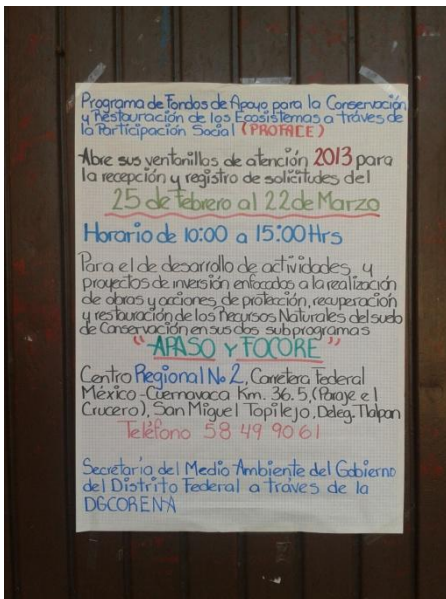 Programa de Fondos de Apoyo para la Conservación
y Restauración de los Ecosistemas a tráves de
la Participación Social (PROFACE)
Abre sus ventanillas de atención 2013 para
la recepción y registro de solicitudes del
25 de febrero al 22 de Marzo
Horario de 10:00 a 15:00 Hrs
Para el de desarrollo de actividades y
proyectos de inversión enfocados a la realización
de obras y acciones de protección, recuperación
y restauración de los Recursos Naturales del suelo
de Conservación en sus dos subprogramas
"APASO y FOCORE"
Centro Regional No 2, Carretera Federal
México-Cuernavaca Km. 36.5, (Paraje el
Crucero), San Miguel Topilejo, Deleg. Tlalpan
Teléfono 58 49 90 61
Secretaría del Medio Ambiente del Gobierno
del Distrito Federal a tráves de la
DGCORENA